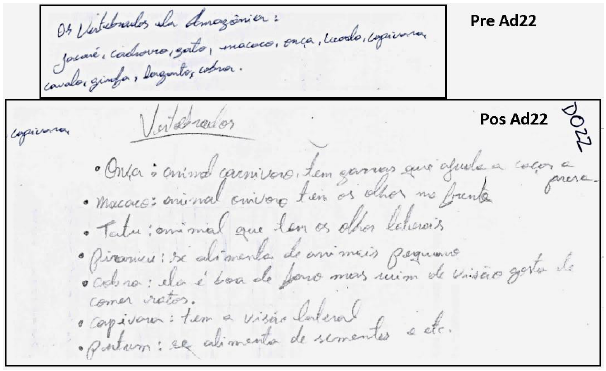 Pre Ad22
Os Vertebrados da Amazônia:
jacaré, cachorro, gato, macaco, onça, veado, capivara,
cavalo, girafa, lagarto, cobra.
Pos Ad22
DO22
capivara
Vertebrados
• Onça: animal carnivoro, tem garras que ajuda a caçar a
presa.
• macaco: animal onivoro tem os olhos na frente
• Tatu: animal que tem os olhos laterais
• : se alimenta de animais pequeno
• cobra: ela é boa de faro mas ruim de visão gosta de
comer ratos.
• capivara: tem a visão lateral
• : se alimenta de sementes e etc.